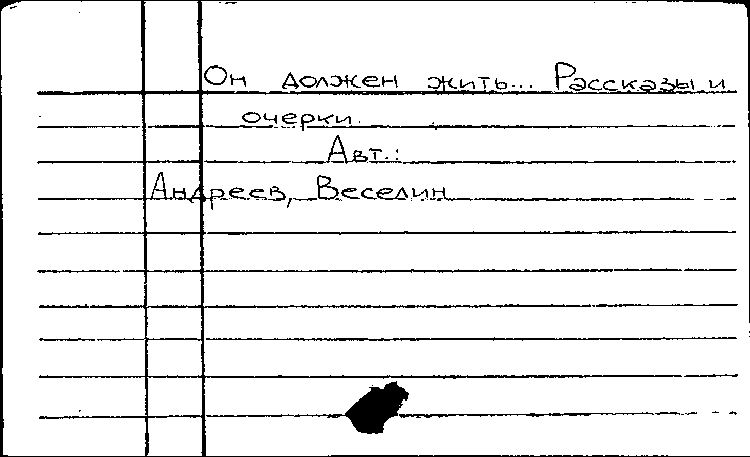 Он должен жить... Рассказы и
очерки.
Авт.:
Андреев, Веселин